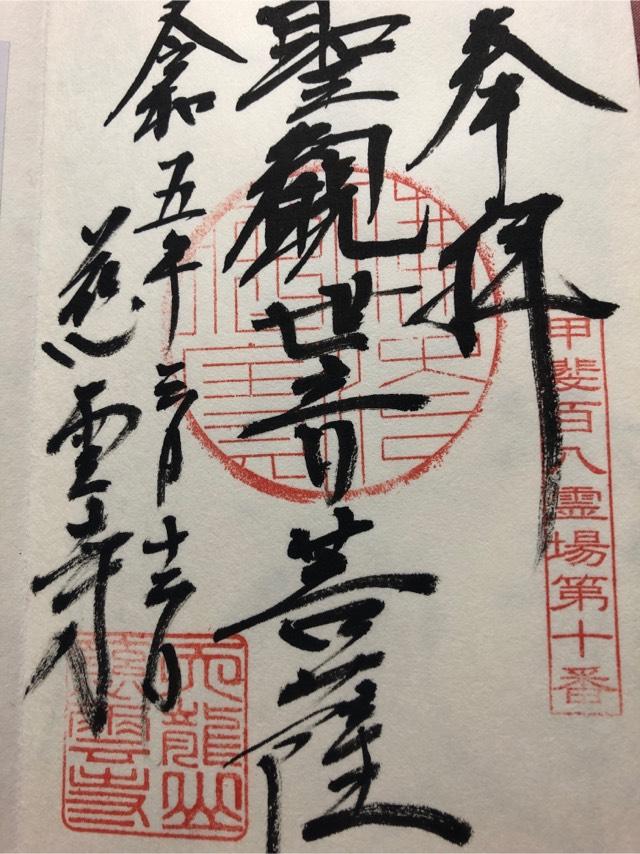 奉拝
甲斐百八霊場第十番
聖觀世音菩薩
令和五年三月十二日
慈雲寺
天龍山
慈雲寺